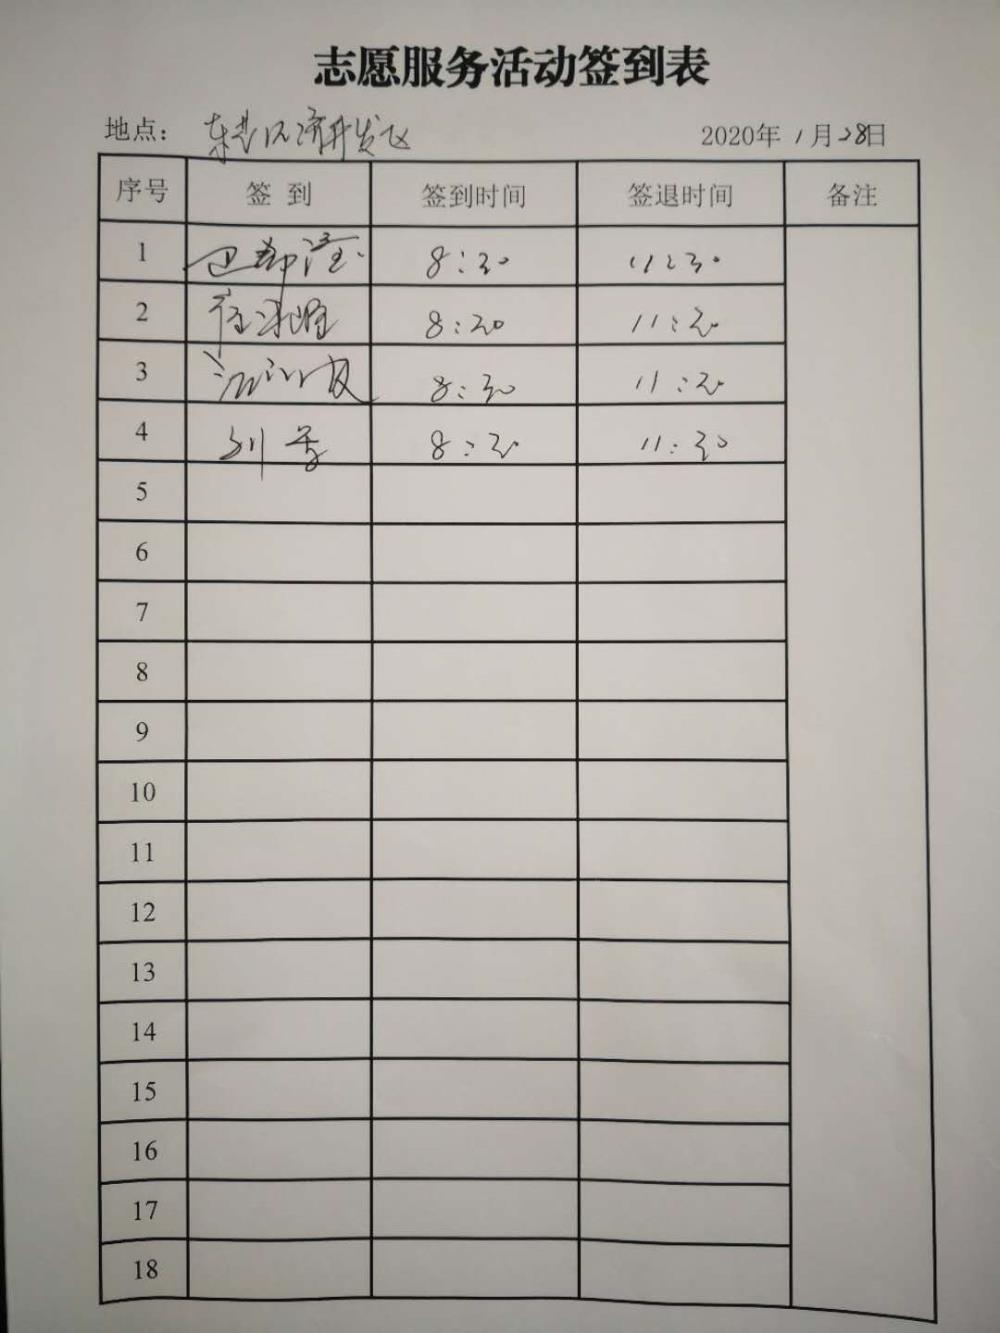 志愿服务活动签到表
地点： 开发区 2020年1月28日
序号 签到 签到时间 签退时间 备注
1 8:30 11:30
2 8:30 11:30
3 8:30 11:30
4 8:30 11:30
5
6
7
8
9
10
11
12
13
14
15
16
17
18